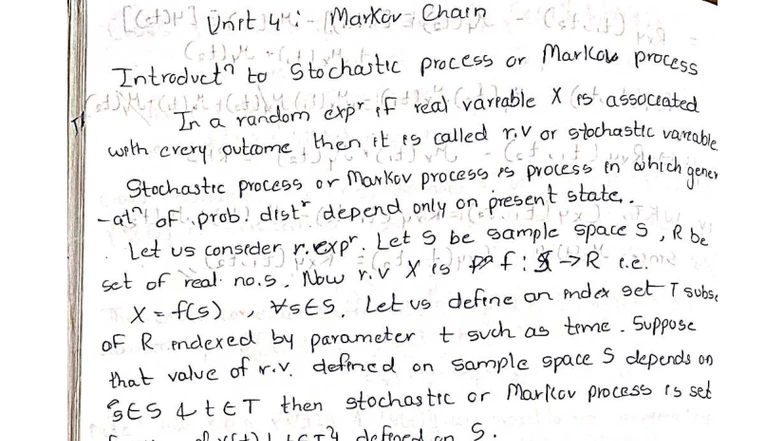 Unit 4: - Markov Chain
Introductⁿ to Stochastic process or Markov process
In a random expʳ if real variable X is associated
with every outcome, then it is called r.v or stochastic variable
Stochastic process or Markov process is process in which gener
-atⁿ of prob. distⁿ depend only on present state.
Let us consider r.expʳ. Let S be sample space S, R be
set of real no.s. Now r.v X is f: S → R i.e.
X = f(s), ∀s∈S. Let us define an index set T subs
of R indexed by parameter t such as time. Suppose
that value of r.v. defined on sample space S depends on
s∈S & t∈T then stochastic or Markov process is set
defined on S.